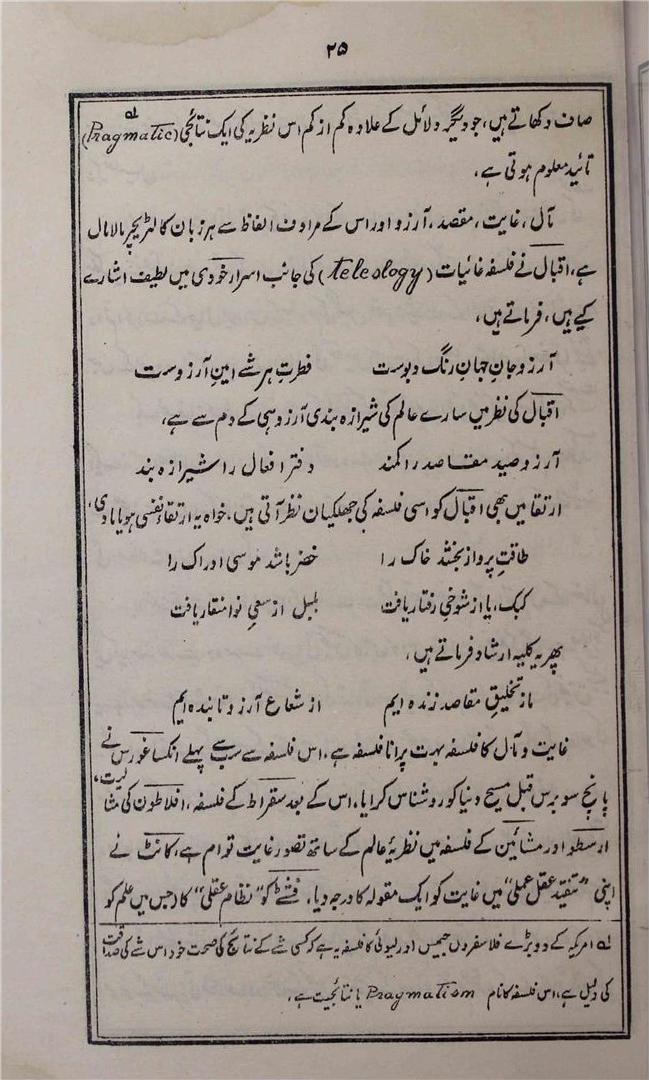 ۲۵
صاف دکھاتے ہیں، جو دیگر دلائل کے علاوہ کم از کم اس نظریہ کی ایک نتائجی (Pragmatic) لہ
تائید معلوم ہوتی ہے۔
مآل، غایت، مقصد، آرزو اور اس کے مرادف الفاظ سے ہر زبان کا لٹریچر مالامال
ہے، اقبال نے فلسفۂ غائیات (teleology) کی جانب اسرار خودی میں لطیف اشارے
کیے ہیں، فرماتے ہیں،
آرزو جانِ جہانِ رنگ و بوست فطرتِ ہر شے امینِ آرزوست
اقبال کی نظر میں سارے عالم کی شیرازہ بندی آرزو ہی کے دم سے ہے،
آرزو صید مقاصد را کمند دفتر افعال را شیرازہ بند
ارتقا میں بھی اقبال کو اسی فلسفہ کی جھلکیاں نظر آتی ہیں، خواہ یہ ارتقاء نفسی ہو یا مادی،
طاقتِ پرواز بخشد خاک را خضر باشد موسیٰ ادراک را
کبک، پا از شوخیِ رفتار یافت بلبل از سعیِ نوا منقار یافت
پھر یہ کلیہ ارشاد فرماتے ہیں،
ما ز تخلیقِ مقاصد زندہ ایم از شعاع آرزو تابندہ ایم
غایت و مآل کا فلسفہ بہت پرانا فلسفہ ہے، اس فلسفہ سے سب سے پہلے انکساغورس نے
پانچ سو برس قبل مسیح دنیا کو روشناس کرایا، اس کے بعد سقراط کے فلسفہ، افلاطون کی مثالیت،
ارسطو اور مشائین کے فلسفہ میں نظریۂ عالم کے ساتھ تصور غایت توام ہے، کانٹ نے
اپنی "تنقید عقل عملی" میں غایت کو ایک مقولہ کا درجہ دیا، فشٹے کو "نظام عقلی" کا (جس میں علم کو
لہ امریکہ کے دو بڑے فلاسفروں جیمس اور ڈیوئی کا فلسفہ یہ ہے کہ کسی شے کے نتائج کی صحت خود اس شے کی صداقت
کی دلیل ہے، اس فلسفہ کا نام Pragmatism یا نتائجیت ہے،